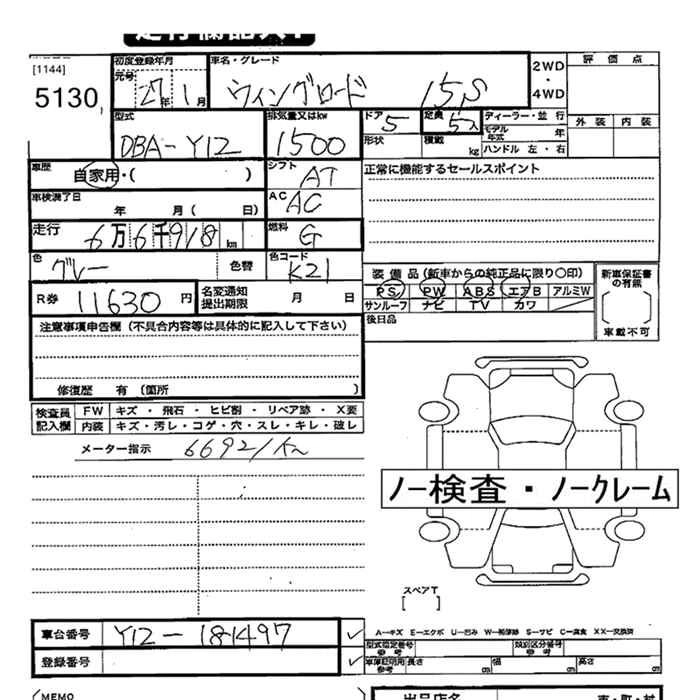 [1144]
5130
初度登録年月
元号 27年 1月
車名・グレード
ウィングロード 15S
2WD
・
4WD
評価点
外装 内装
型式
DBA-Y12
排気量又はkw
1500
ドア
5
形状
定員
5人
積載 kg
ディーラー・並行
モデル年式 年
ハンドル 左・右
車歴
自家用・( )
シフト
AT
正常に機能するセールスポイント
車検満了日
年 月( 日)
AC
AC
走行
6万6千918km
燃料
G
色
グレー
色替
色コード
K21
装備品(新車からの純正品に限り○印)
PS PW ABS エアB アルミW
サンルーフ ナビ TV カワ
新車保証書の有無
[ ]
車載不可
R券 11630円
名変通知
提出期限
月 日
後日品
注意事項申告欄(不具合内容等は具体的に記入して下さい)
修復歴 有[箇所 )
検査員記入欄
FW キズ・飛石・ヒビ割・リペア跡・X要
内装 キズ・汚レ・コゲ・穴・スレ・キレ・破レ
メーター指示 66921km
ノー検査・ノークレーム
スペアT
[ ]
車台番号 Y12-181497 ✓
登録番号 ✓
A-キズ E-エクボ U-凹み W-補修跡 S-サビ C-腐食 XX-交換済
型式指定番号
参考
類別区分番号
参考
車庫証明用
参考
長さ cm 幅 cm 高さ cm
(MEMO
出品店名
市・町・村